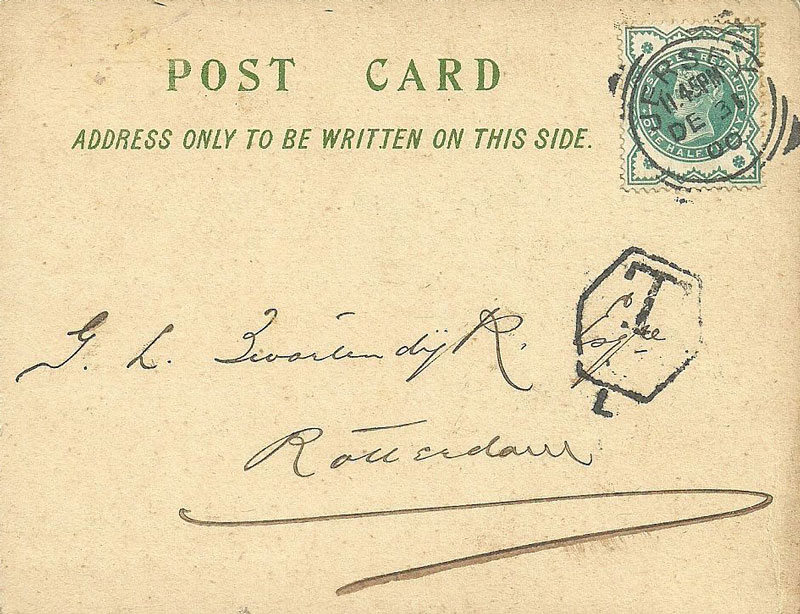 POST CARD
ADDRESS ONLY TO BE WRITTEN ON THIS SIDE.
JERSEY
11.45PM
DE 31
00
POSTAGE & REVENUE
ONE HALFPENNY
T
L
G. L. Zwartendijk. Esqre
Rotterdam